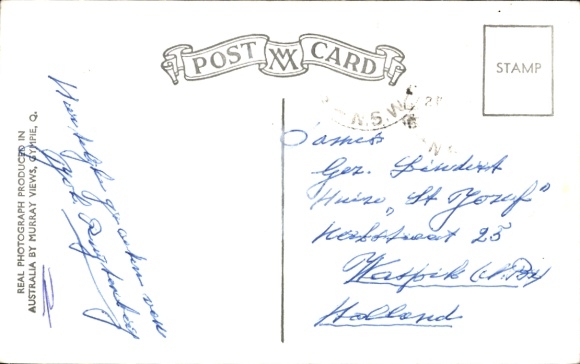 POST CARD
STAMP
N.S.W.
REAL PHOTOGRAPH PRODUCED IN
AUSTRALIA BY MURRAY VIEWS, GYMPIE, Q.
Hartelijke groeten van
Dames
Gez.
Huize "St Jozef"
Kerkstraat 25
Waspik (N.Br)
Holland